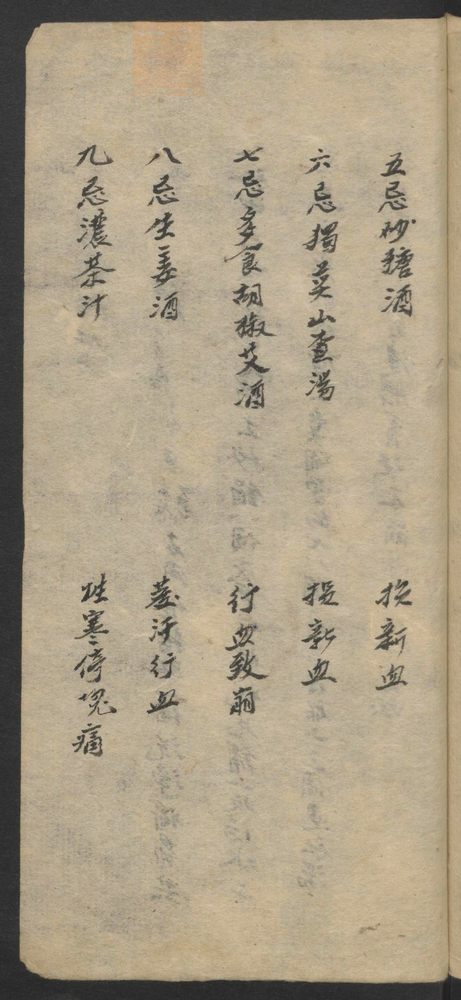 五忌砂糖酒 損新血
六忌獨煎山查湯 損新血
七忌多食胡椒艾酒 行血致崩
八忌生姜酒 發汗行血
九忌濃茶汁 性寒停塊痛